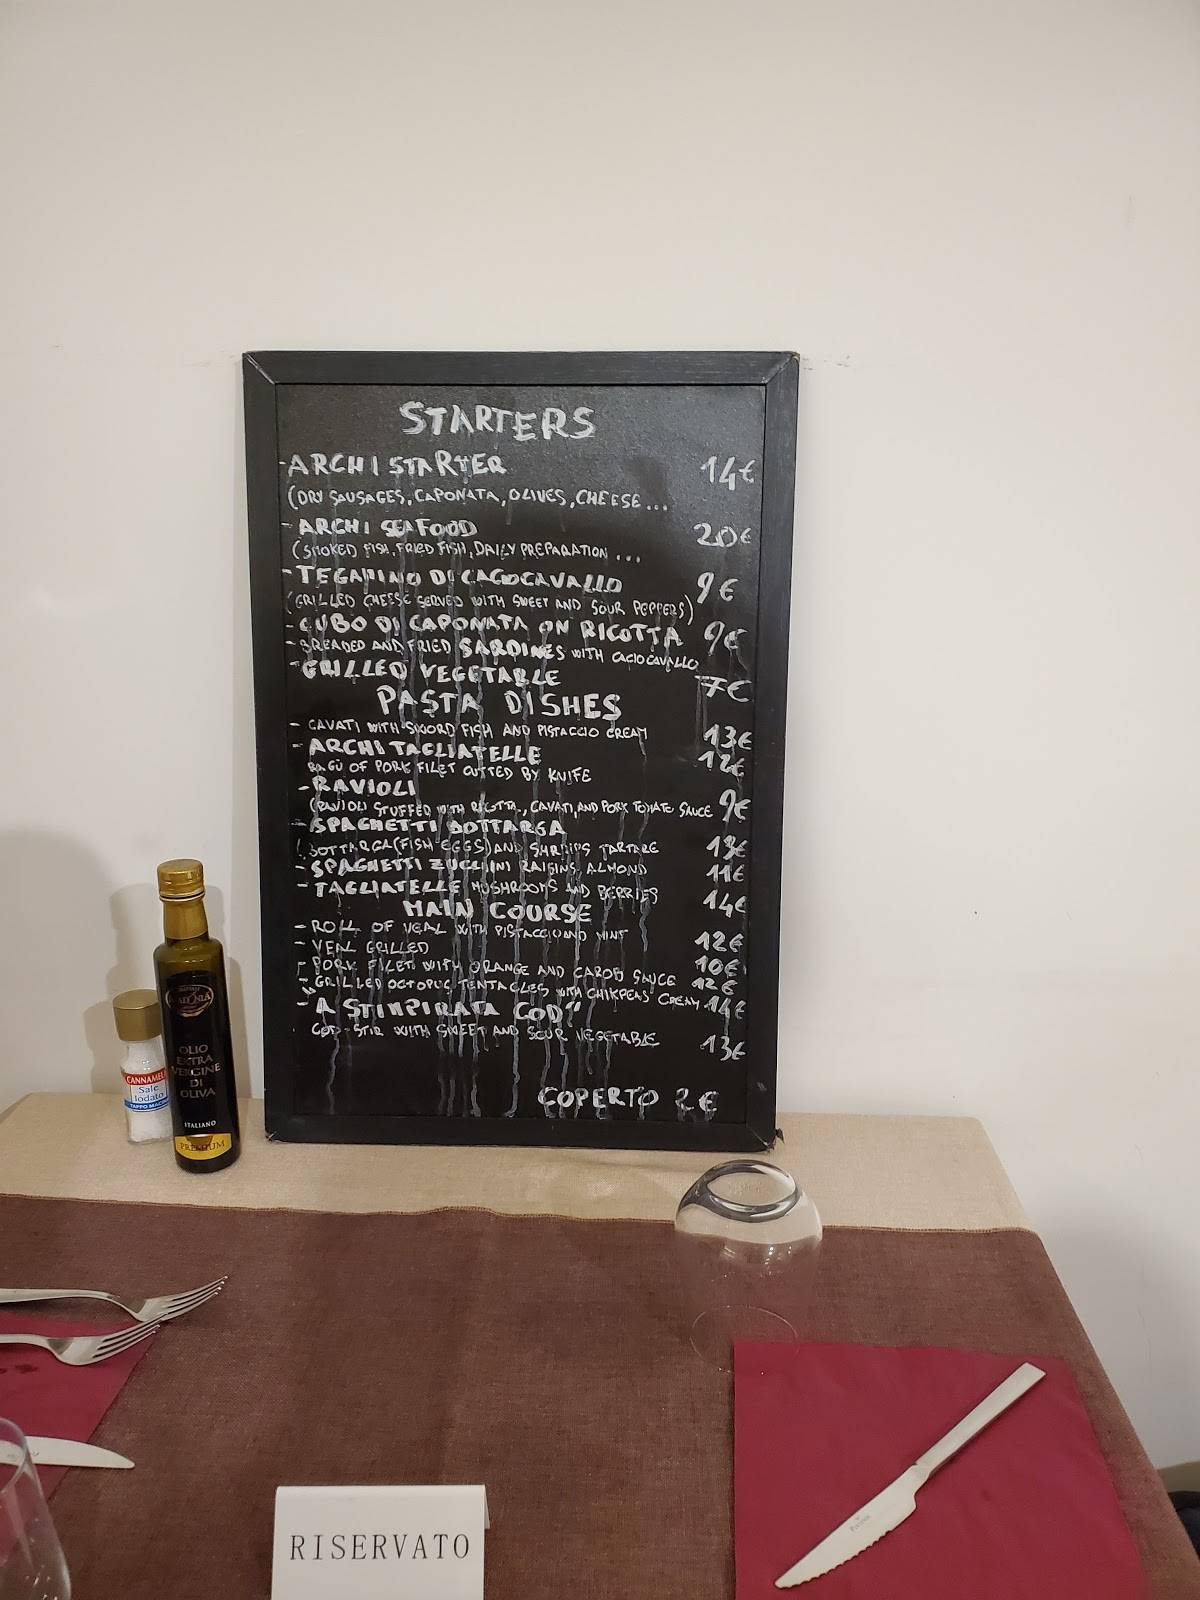 STARTERS
- ARCHI STARTER 14€
(DRY SAUSAGES, CAPONATA, OLIVES, CHEESE...
- ARCHI SEAFOOD 20€
(SMOKED FISH, FRIED FISH, DAILY PREPARATION ...
- TEGAMINO DI CACIOCAVALLO 9€
(GRILLED CHEESE SERVED WITH SWEET AND SOUR PEPPERS)
- CUBO DI CAPONATA ON RICOTTA 9€
- BREADED AND FRIED SARDINES WITH CACIOCAVALLO
- GRILLED VEGETABLE 7€
PASTA DISHES
- CAVATI WITH SWORD FISH AND PISTACCIO CREAM 13€
- ARCHI TAGLIATELLE 12€
RAGÙ OF PORK FILET CUTTED BY KNIFE
- RAVIOLI
(RAVIOLI STUFFED WITH RICOTTA, CAVATI, AND PORK TOMATO SAUCE 9€
- SPAGHETTI BOTTARGA
(BOTTARGA (FISH EGGS) AND SHRIMPS TARTARE 13€
- SPAGHETTI ZUCCHINI RAISINS, ALMOND 11€
- TAGLIATELLE MUSHROOMS AND BERRIES 14€
MAIN COURSE
- ROLL OF VEAL WITH PISTACCIO AND MINT 12€
- VEAL GRILLED 10€
- PORK FILET WITH ORANGE AND CAROB SAUCE 12€
- GRILLED OCTOPUS TENTACLES WITH CHIKPEAS CREAM 14€
- "A STIMPIRATA COD"
COD STIR WITH SWEET AND SOUR VEGETABLE 13€
COPERTO 2€
CANNAMELA
Sale
Iodato
TAPPO MACINA
MADONIA
OLIO
EXTRA
VERGINE
DI
OLIVA
ITALIANO
PREMIUM
RISERVATO